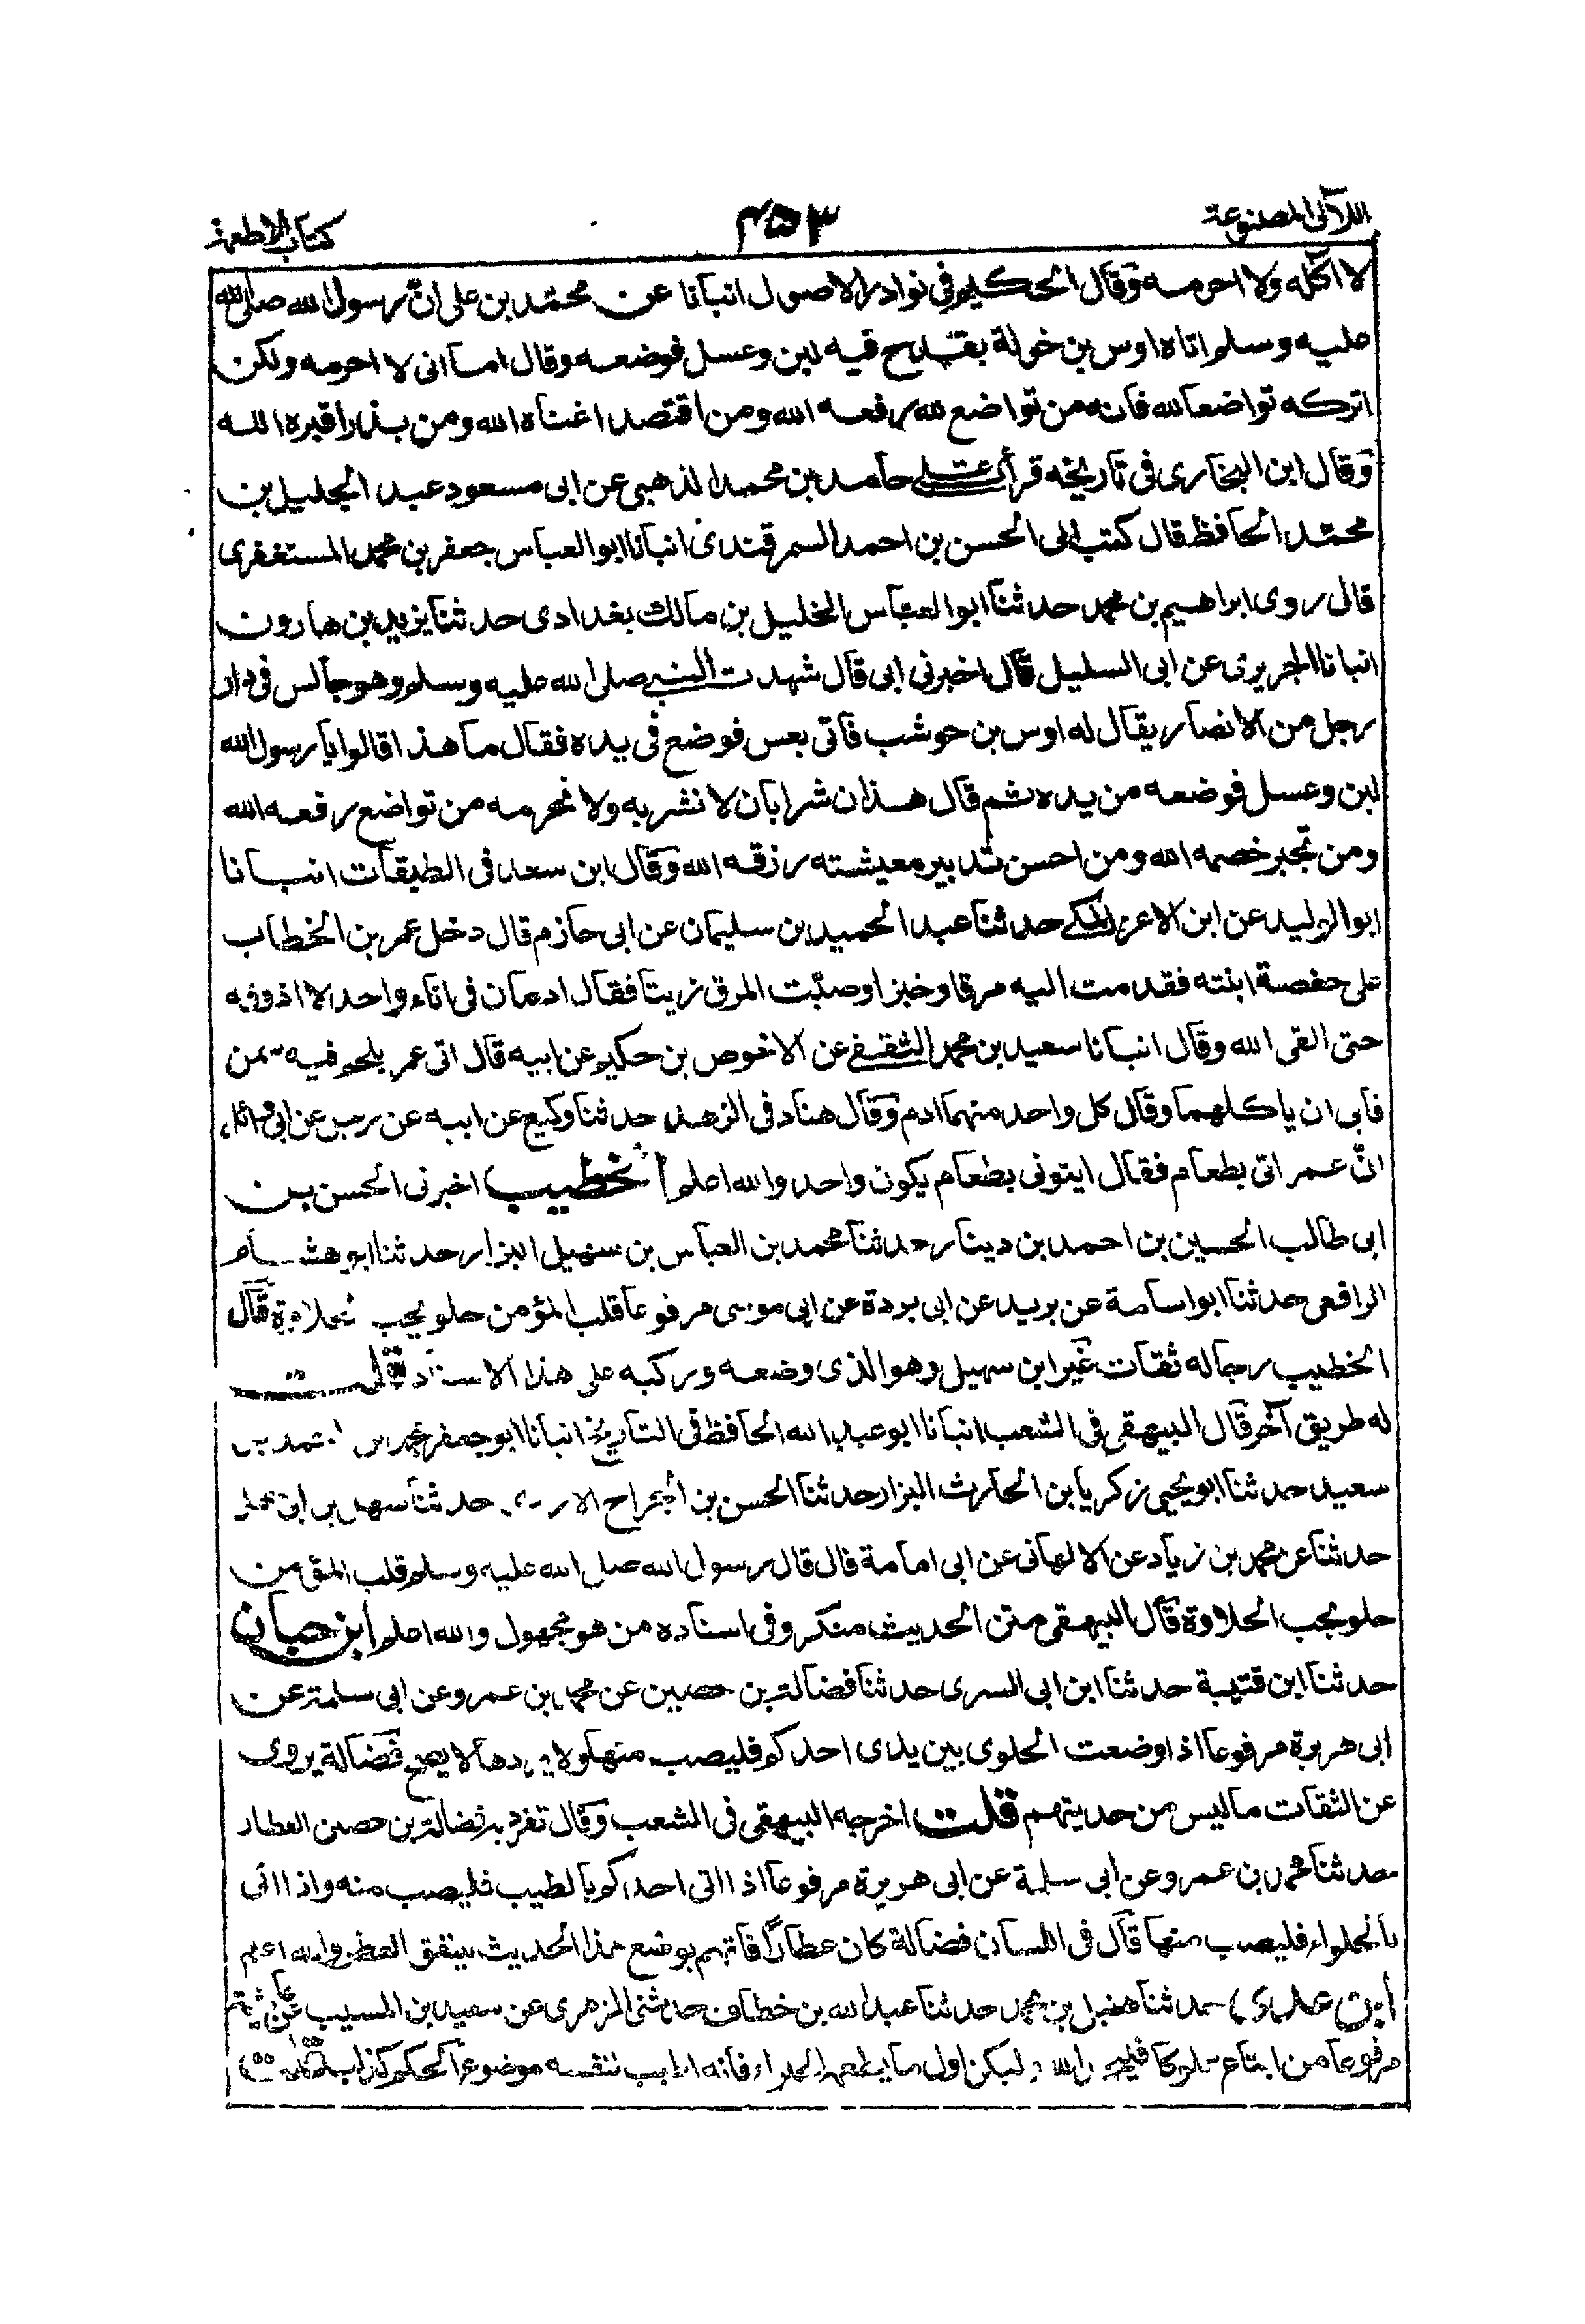 اللآلى المصنوعة
٤٥٣
كتاب الاطعمة
لا آكله ولا احرمه وقال الحكيم فى نوادر الاصول انبانا عن محمّد بن على انّ رسول الله صلى الله
عليه وسلم اتاه اوس بن خولة بقدح فيه لبن وعسل فوضعه وقال اما انى لا احرمه ولكن
اتركه تواضعا لله فانه من تواضع لله رفعه الله ومن اقتصد اغناه الله ومن بذر اقبره الله
وقال ابن البخارى فى تاريخه قرأت على حامد بن محمد الذهبى عن ابى مسعود عبد الجليل بن
محمّد الحافظ قال كتب الى الحسن بن احمد السمرقندى انبانا ابو العباس جعفر بن محمد المستغفرى
قال روى ابراهيم بن محمد حدثنا ابو العباس الخليل بن مالك بغدادى حدثنا يزيد بن هارون
انبانا الجريرى عن ابى السليل قال اخبرنى ابى قال شهدت النبى صلى الله عليه وسلم وهو جالس فى دار
رجل من الانصار يقال له اوس بن حوشب فاتى بعس فوضع فى يده فقال ما هذا قالوا يا رسول الله
لبن وعسل فوضعه من يده ثم قال هذان شرابان لا نشربه ولا نحرمه من تواضع رفعه الله
ومن تجبر خصمه الله ومن احسن تدبير معيشته رزقه الله وقال ابن سعد فى الطبقات انبانا
ابو الوليد عن ابن الاعز المكى حدثنا عبد الحميد بن سليمان عن ابى حازم قال دخل عمر بن الخطاب
على حفصة ابنته فقدمت اليه مرقا وخبزا وصبّت المرق زيتا فقال ادمان فى اناء واحد لا اذوقه
حتى القى الله وقال انبانا سعيد بن محمد الثقفى عن الاحوص بن حكيم عن ابيه قال اتى عمر بلحم فيه سمن
فابى ان ياكلهما وقال كل واحد منهما ادم وقال هناد فى الزهد حدثنا وكيع عن ابيه عن رجل عن ابى وائل
انّ عمر اتى بطعام فقال ايتونى بطعام يكون واحد والله اعلم الخطيب اخبرنى الحسن بن
ابى طالب الحسين بن احمد بن دينار حدثنا محمد بن العباس بن سهيل البزار حدثنا ابو هشام
الرافعى حدثنا ابو اسامة عن بريد عن ابى بردة عن ابى موسى مرفوعا قلب المؤمن حلو يحب الحلاوة قال
الخطيب رجاله ثقات غير ابن سهيل وهو الذى وضعه وركبه على هذا الاسناد قلت
له طريق آخر قال البيهقى فى الشعب انبانا ابو عبد الله الحافظ فى التاريخ انبانا ابو جعفر محمد بن احمد بن
سعيد حدثنا ابو يحيى زكريا بن الحارث البزار حدثنا الحسن بن الجراح حدثنا سهل بن ابى
حدثنا عن محمد بن زياد عن الالهانى عن ابى امامة قال قال رسول الله صلى الله عليه وسلم قلب المؤمن
حلو يحب الحلاوة قال البيهقى متن الحديث منكر وفى اسناده من هو مجهول والله اعلم ابن حبان
حدثنا ابن قتيبة حدثنا ابن ابى السرى حدثنا فضالة بن حصين عن محمد بن عمرو عن ابى سلمة عن
ابى هريرة مرفوعا اذا وضعت الحلوى بين يدى احدكم فليصب منها ولا يردها لا يصح فضالة يروى
عن الثقات ما ليس من حديثهم قلت اخرجه البيهقى فى الشعب وقال تفرد به فضالة بن حصين العطار
حدثنا محمد بن عمرو عن ابى سلمة عن ابى هريرة مرفوعا اذا اتى احدكم بالطيب فليصب منه واذا اتى
بالحلواء فليصب منها قال فى اللسان فضالة كان عطارًا فاتهم بوضع هذا الحديث لينفق العطر والله اعلم
ابن عدى حدثنا هنبل بن محمد حدثنا عبد الله بن خطاف حدثنى الزهرى عن سعيد بن المسيب عن عائشة
مرفوعا من ابتاع مملوكا فليحمد الله وليكن اول ما يطعمه الحلواء فانه اطيب لنفسه موضوع الحكم كذاب قلت